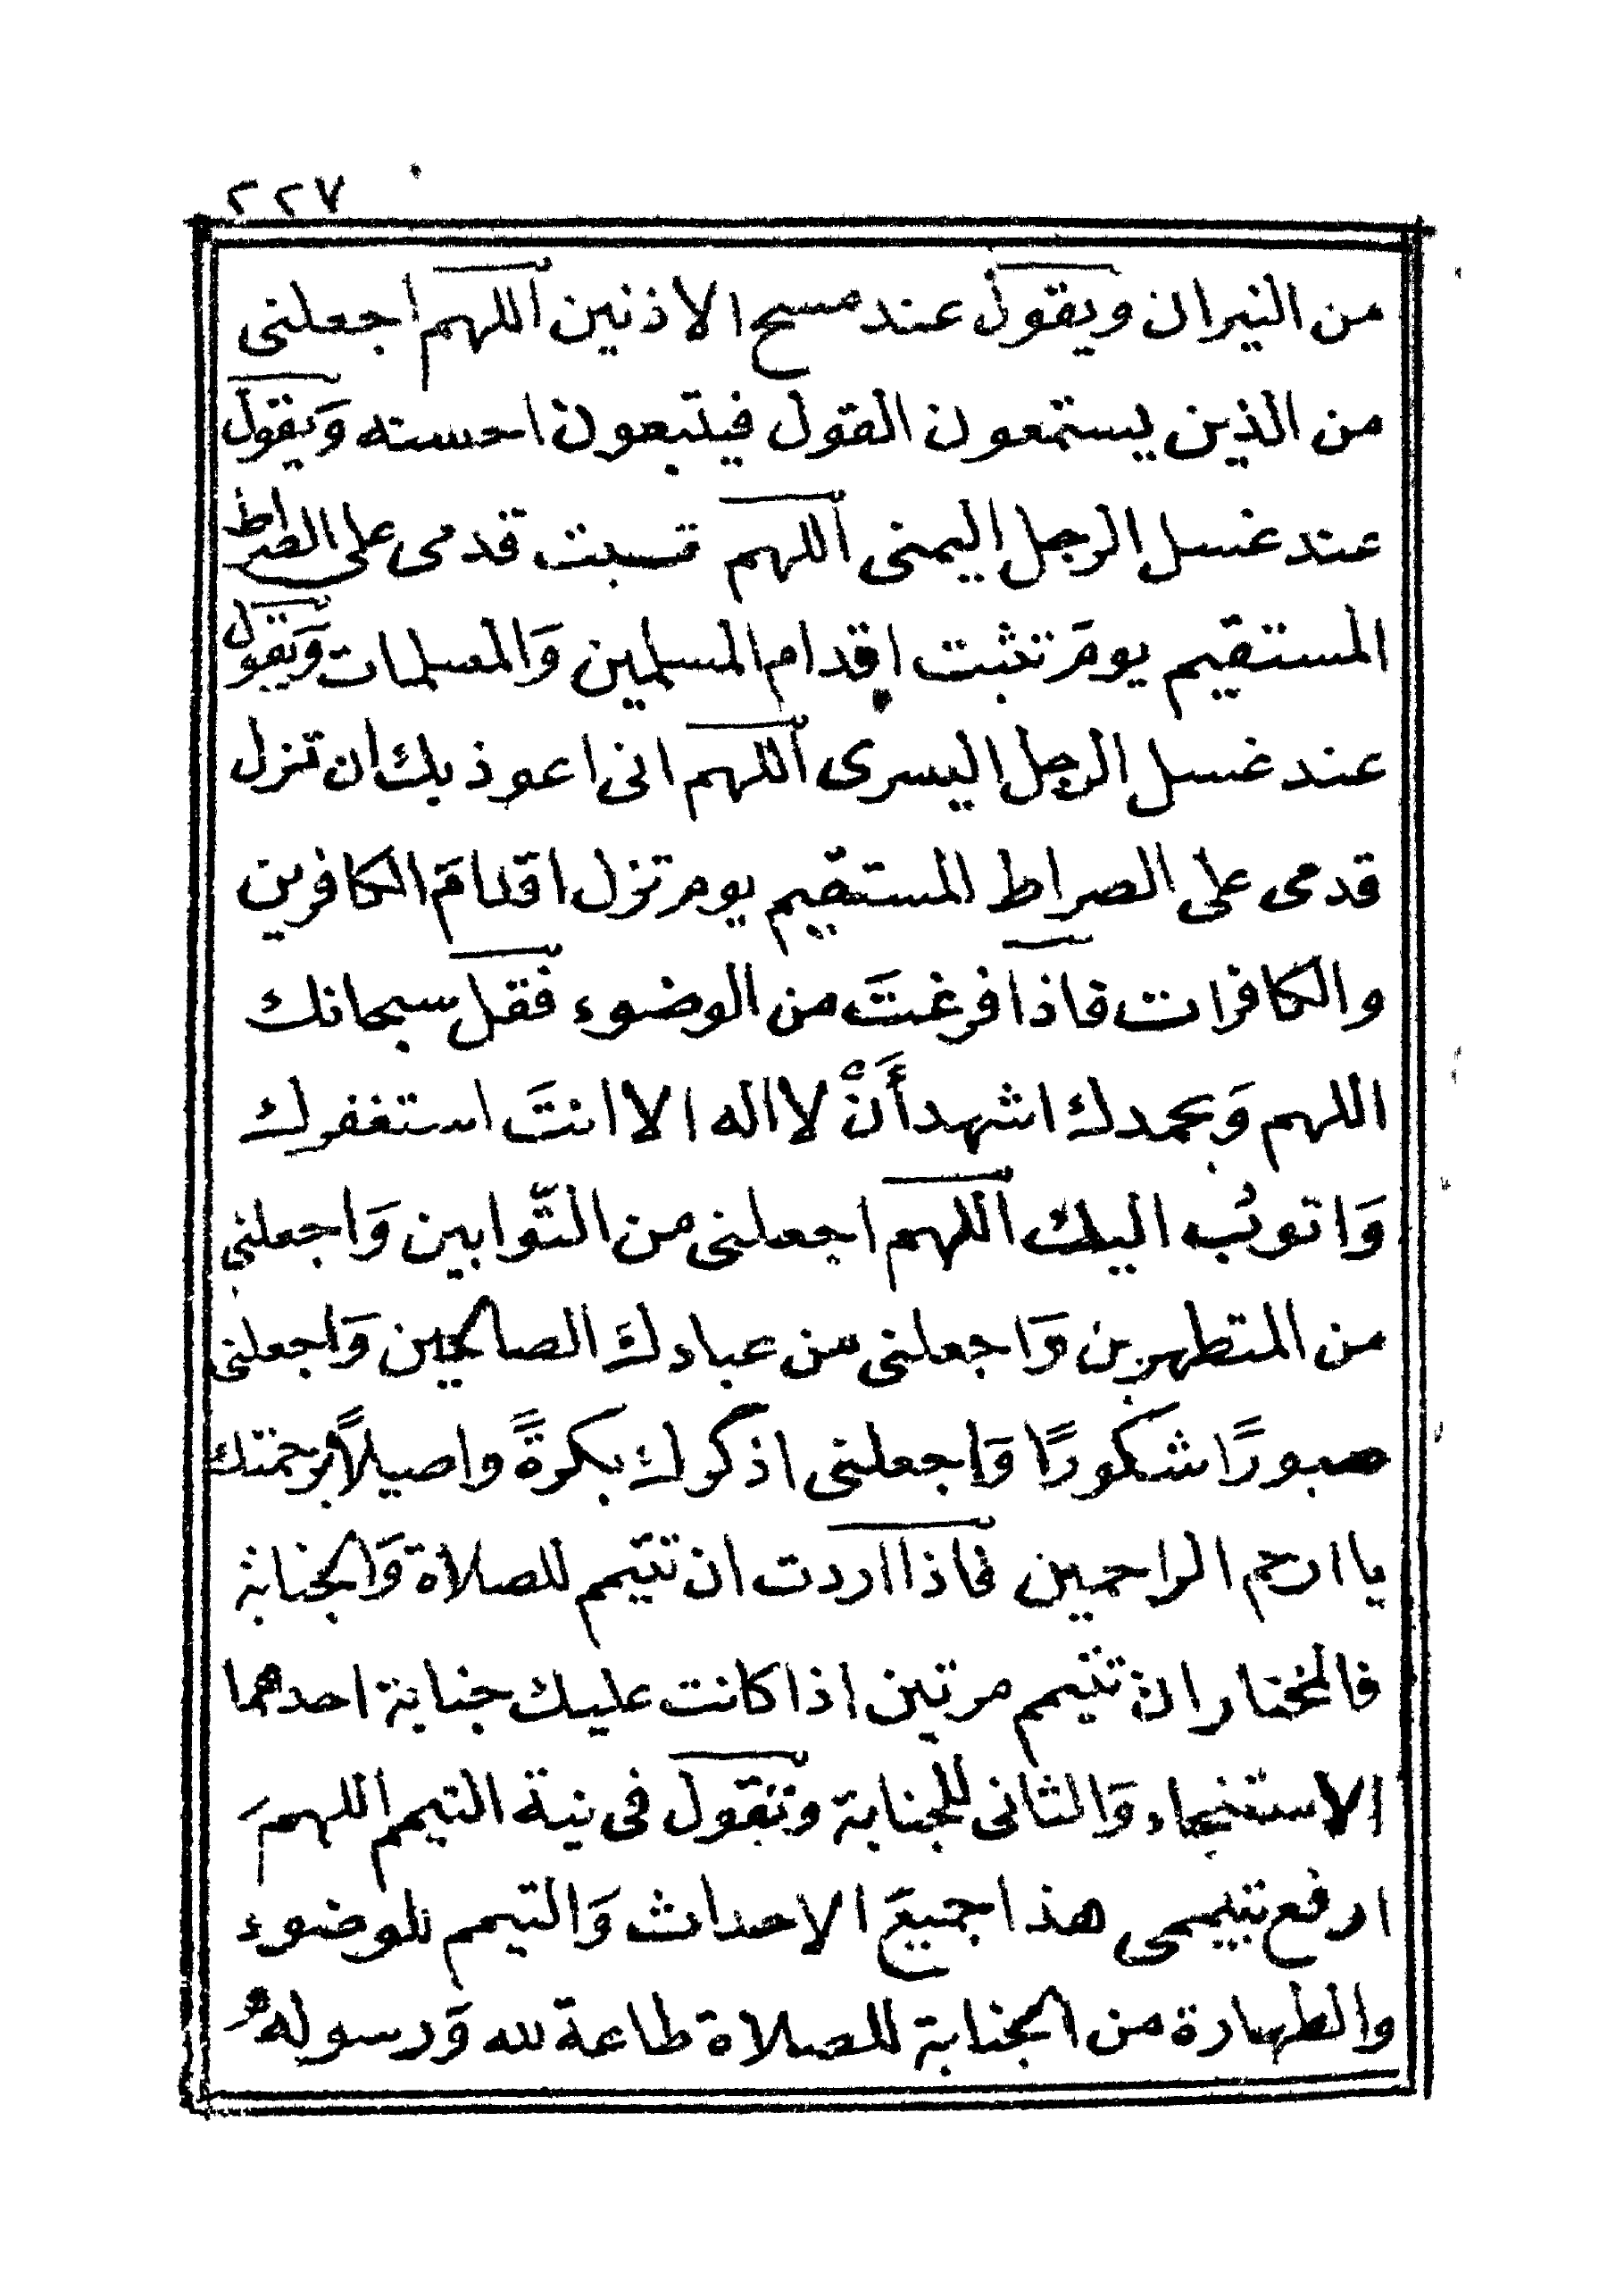 ٢٢٧
من النيران ويقول عند مسح الاذنين اللهم اجعلنى
من الذين يستمعون القول فيتبعون احسنه وَيقول
عند غسل الرجل اليمنى اللهم تسبت قدمى على الصراط
المستقيم يومَ تثبت اقدام المسلمين وَالمسلمات وَيقول
عند غسل الرجل اليسرى اللهم انى اعوذ بك ان تزل
قدمى على الصراط المستقيم يوم تزل اقدامَ الكافرين
والكافرات فاذا فرغتَ من الوضوء فقل سبحانك
اللهم وَبحمدك اشهد أَنْ لا اله الا انتَ استغفرك
وَاتوبُ اليك اللهم اجعلنى من التّوابين وَاجعلنى
من المتطهرين وَاجعلنى من عبادكَ الصالحين وَاجعلنى
صبورًا شكورًا وَاجعلنى اذكرك بكرةً واصيلاً برحمتك
يا ارحم الراحمين فاذا اردت ان تتيمم للصلاة وَالجنابة
فالمختار ان تتيمم مرتين اذا كانت عليك جنابة احدهما
الاستنجاء وَالثانى للجنابة وتقول فى نية التيمم اللهمَ
ارفع بتيممى هذا جميعَ الاحداث وَالتيمم للوضوء
والطهارة من الجنابة للصلاة طاعة لله وَرسوله